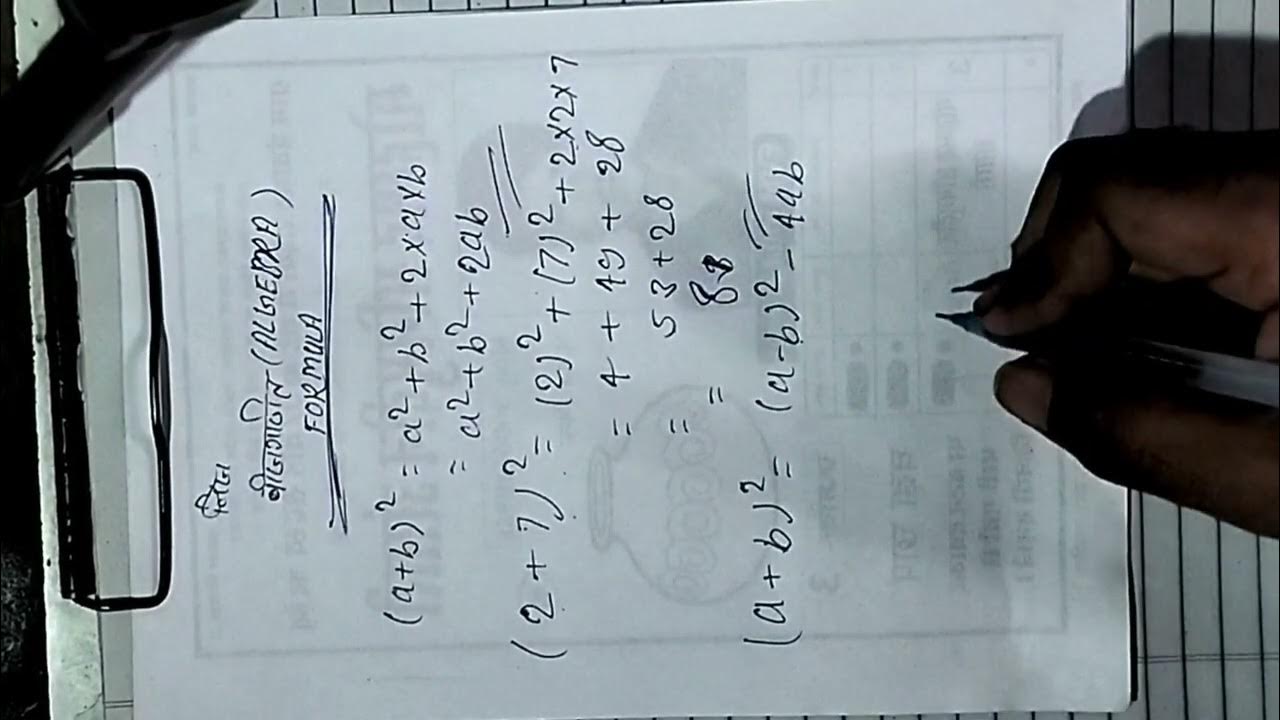 बीजगणित (ALGEBRA)
FORMULA
(a+b)² = a² + b² + 2×a×b
= a² + b² + 2ab
(2+7)² = (2)² + (7)² + 2×2×7
= 4 + 49 + 28
= 53 + 28
=
(a+b)² = (a-b)² - 4ab